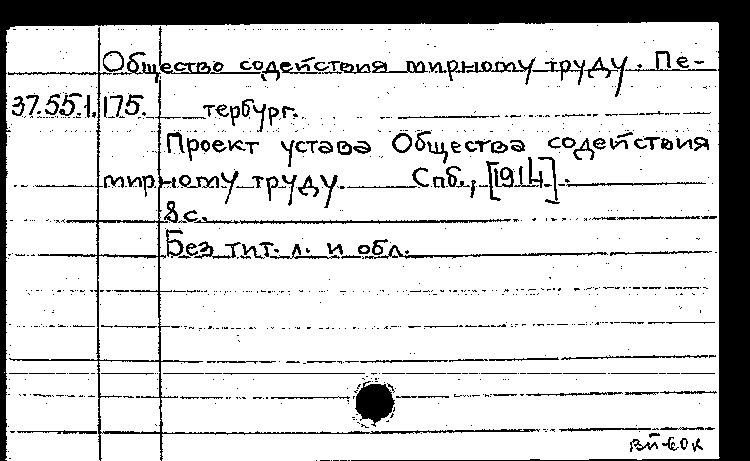 Общество содействия мирному труду. Пе-
37.55.1.175. тербург.
Проект устава Общества содействия
мирному труду. Спб., [1914].
8 с.
Без тит. л. и обл.